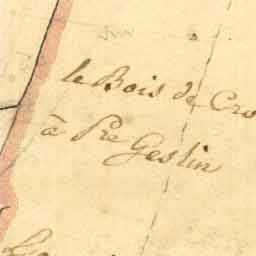 le Bois de Cro
à Pre Geslin